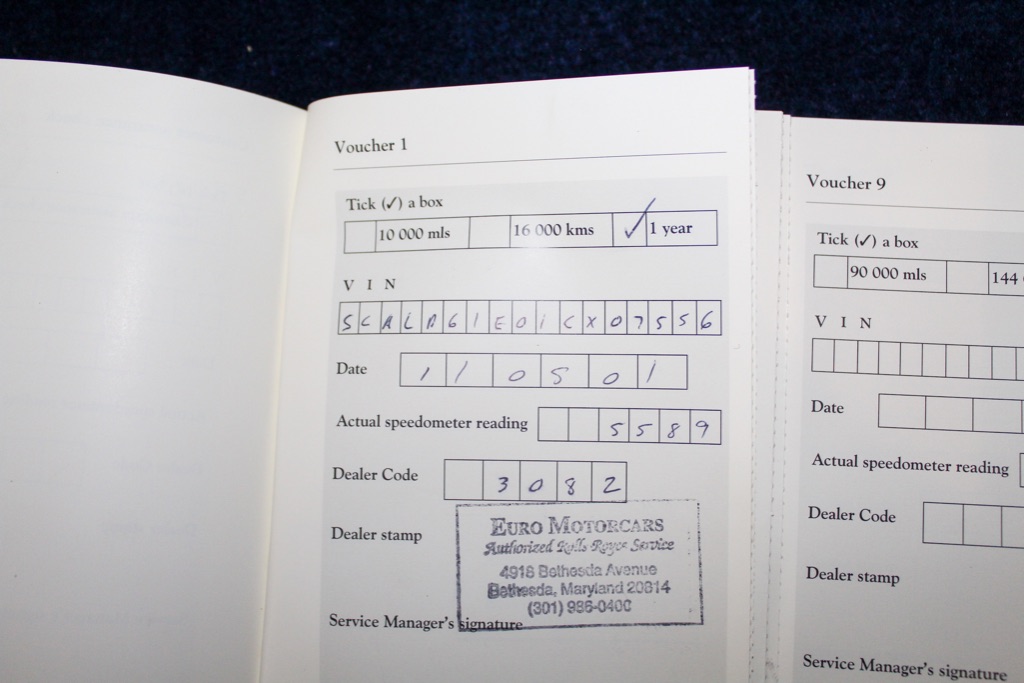 Voucher 1
Tick (✓) a box
10 000 mls 16 000 kms ✓ 1 year
V I N
S C A L D 6 1 E 0 1 C X 0 7 5 5 6
Date 1 1 0 5 0 1
Actual speedometer reading 5 5 8 9
Dealer Code 3 0 8 2
Dealer stamp
EURO MOTORCARS
Authorized Rolls-Royce Service
4918 Bethesda Avenue
Bethesda, Maryland 20814
(301) 986-0400
Service Manager's signature
Voucher 9
Tick (✓) a box
90 000 mls 144
V I N
Date
Actual speedometer reading
Dealer Code
Dealer stamp
Service Manager's signature